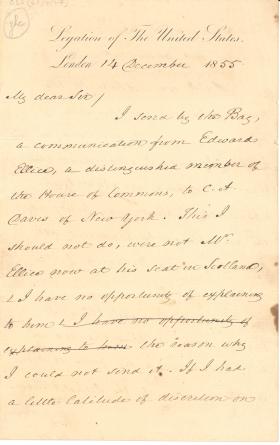 Legation of The United States.
London 14 December 1855
My dear Sir/
I send by the Bag,
a communication from Edward
Ellice, a distinguished member of
the House of Commons, to C. A.
Davis of New York. This I
should not do, were not Mr.
Ellice now at his seat in Scotland,
& I have no opportunity of explaining
to him & I have no opportunity of
explaining to him the reason why
I could not send it. If I had
a little latitude of discretion on